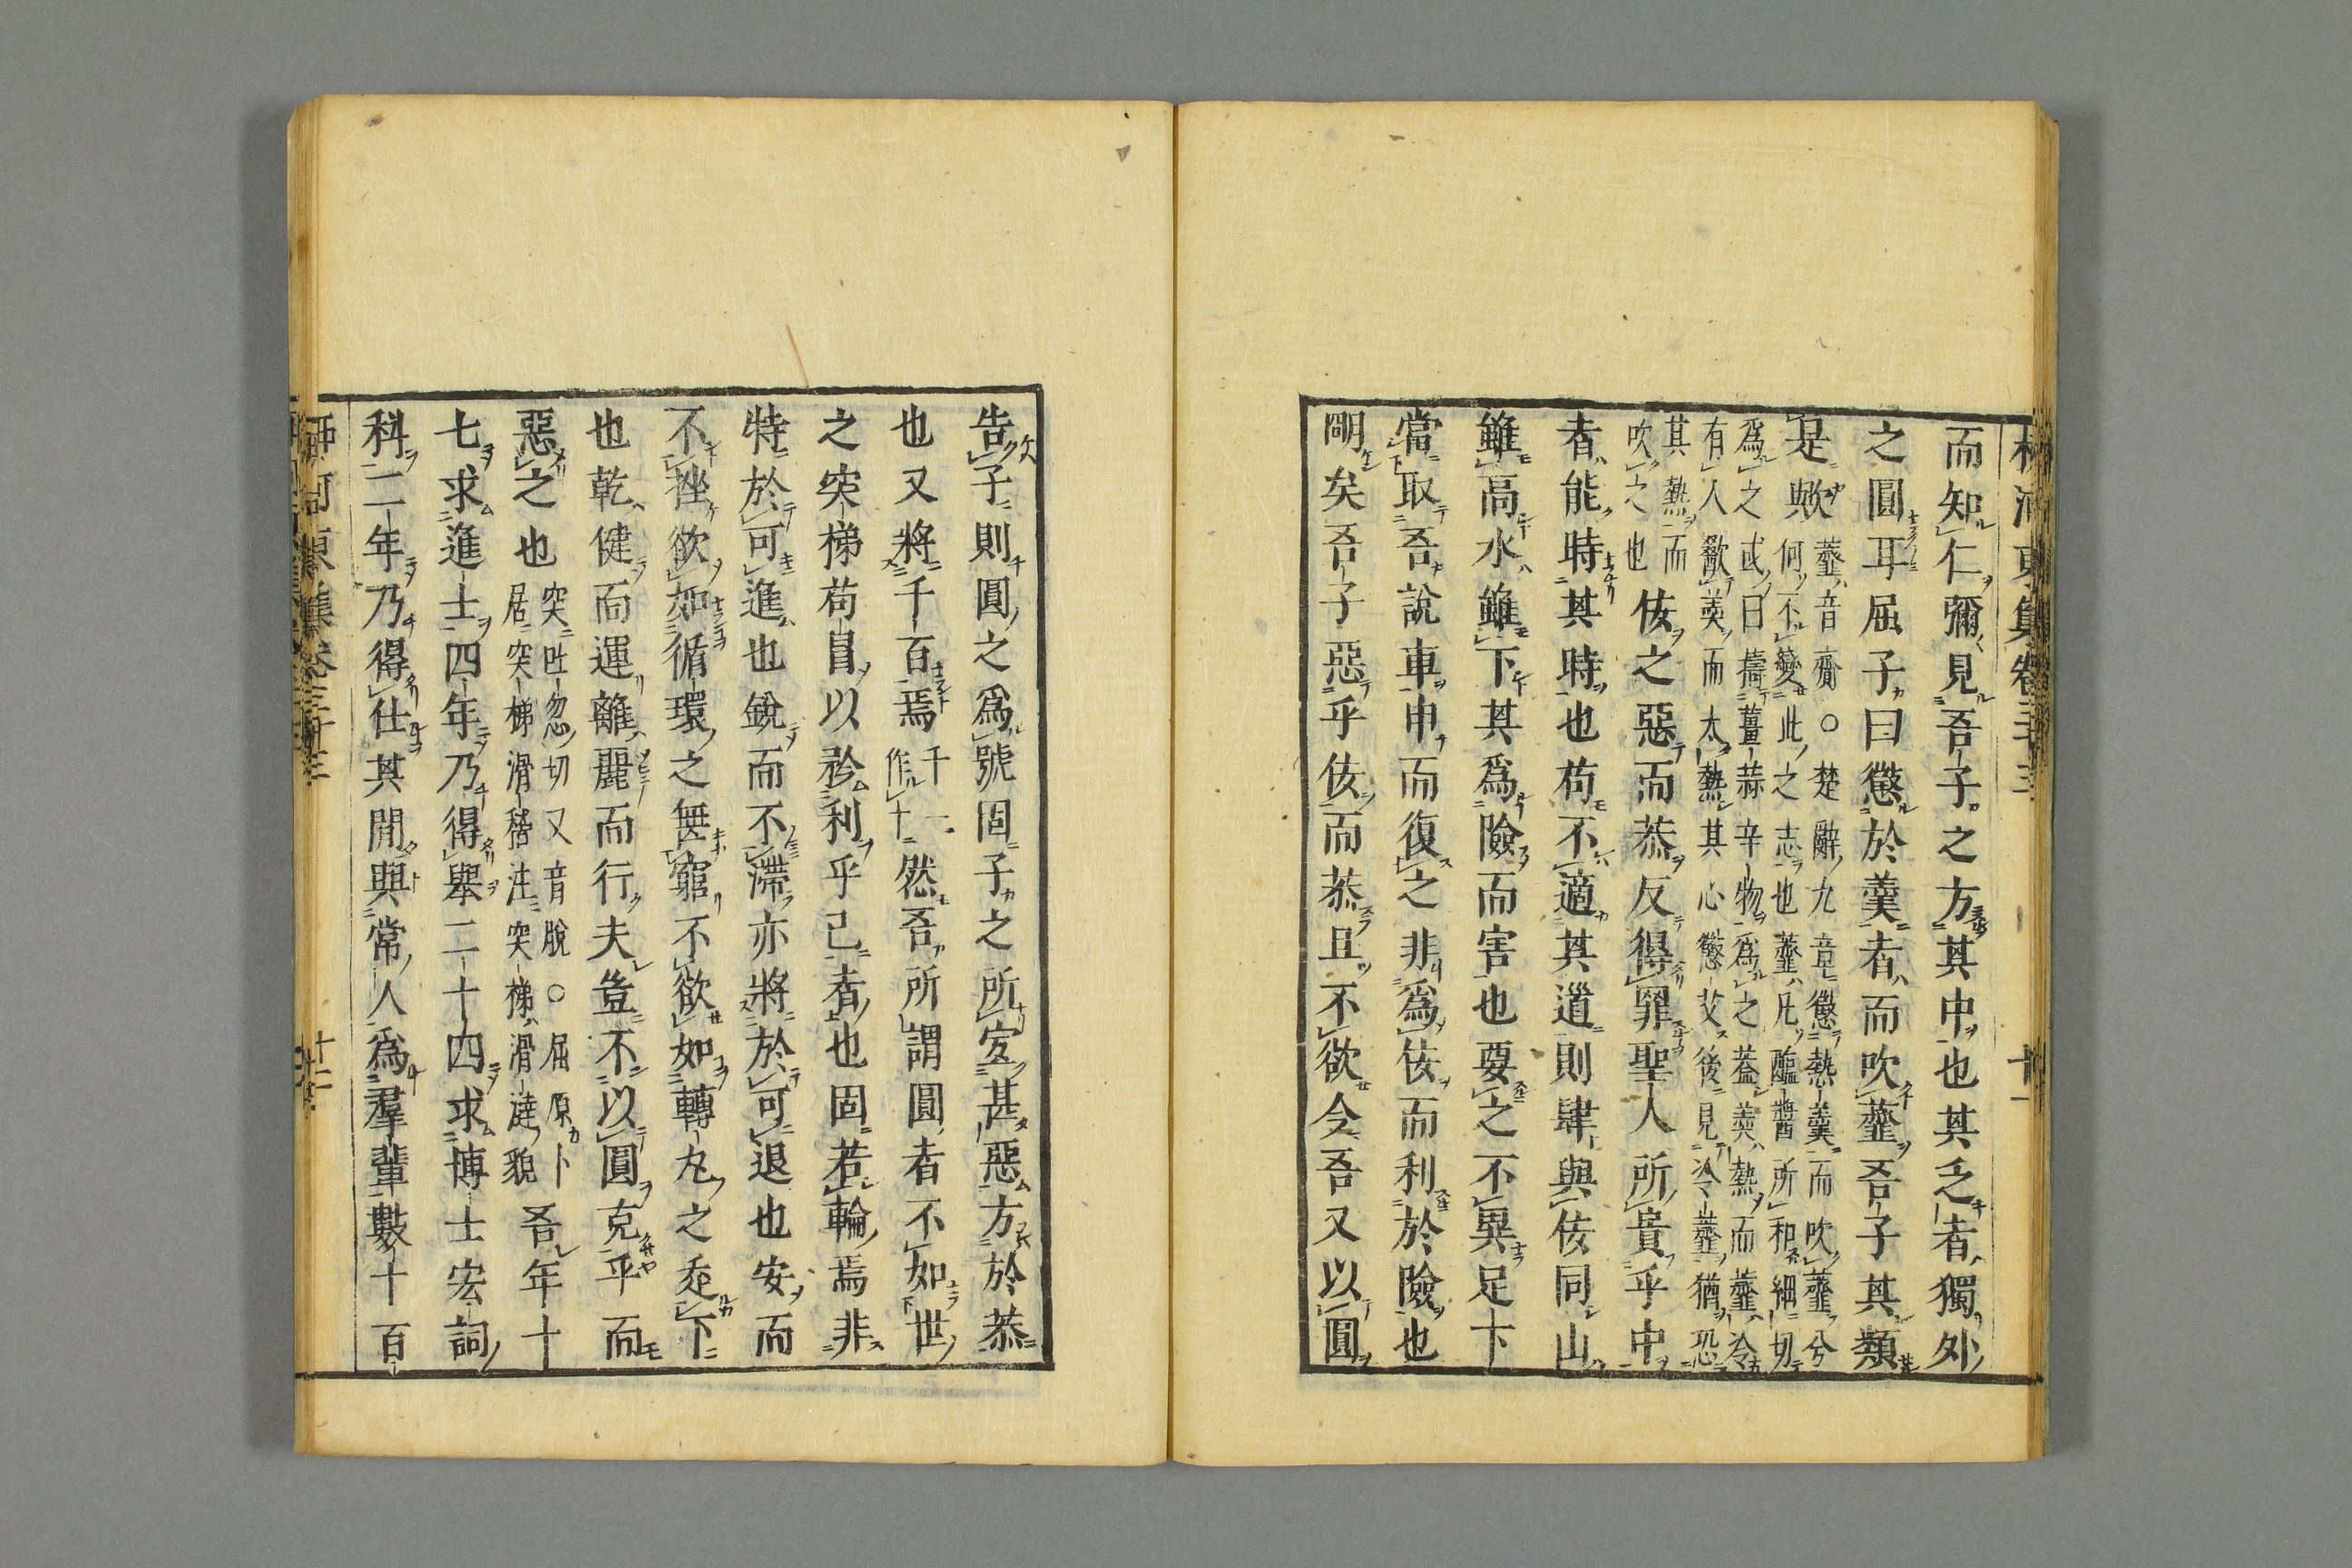 柳河東集卷三十三
十一
而知仁彌見吾子之方其中也其乏者獨外
之圓耳屈子曰懲於羹者而吹虀吾子其類
是歟
虀音齎○楚辭九章懲熱羹而吹虀兮
何不變此之志也虀凡醢醬所和細切
爲之或曰擣薑蒜辛物爲之葢羹熱而虀冷
有人歠羹而太熱其心懲艾後見冷虀猶恐
其熱而
吹之也
佞之惡而恭反得罪聖人所貴乎中
者能時其時也苟不適其道則肆與佞同山
雖高水雖下其爲險而害也要之不異足下
當取吾說車申而復之非爲佞而利於險也
明矣吾子惡乎佞而恭且不欲今吾又以圓
告子則圓之爲號固子之所宜甚惡方於恭
也又將千百焉
千一
作十
然吾所謂圓者不如世
之突梯苟冒以矜利乎己者也固若輪焉非
特於可進也銳而不滯亦將於可退也安而
不挫欲如循環之無窮不欲如轉丸之走下
也乾健而運離麗而行夫豈不以圓克乎而
惡之也
突吐忽切又音脫○屈原卜
居突梯滑稽注突梯滑澾貌
吾年十
七求進士四年乃得舉二十四求博士宏詞
科二年乃得仕其間與常人爲羣輩數十百
柳河東集卷三十三
十二